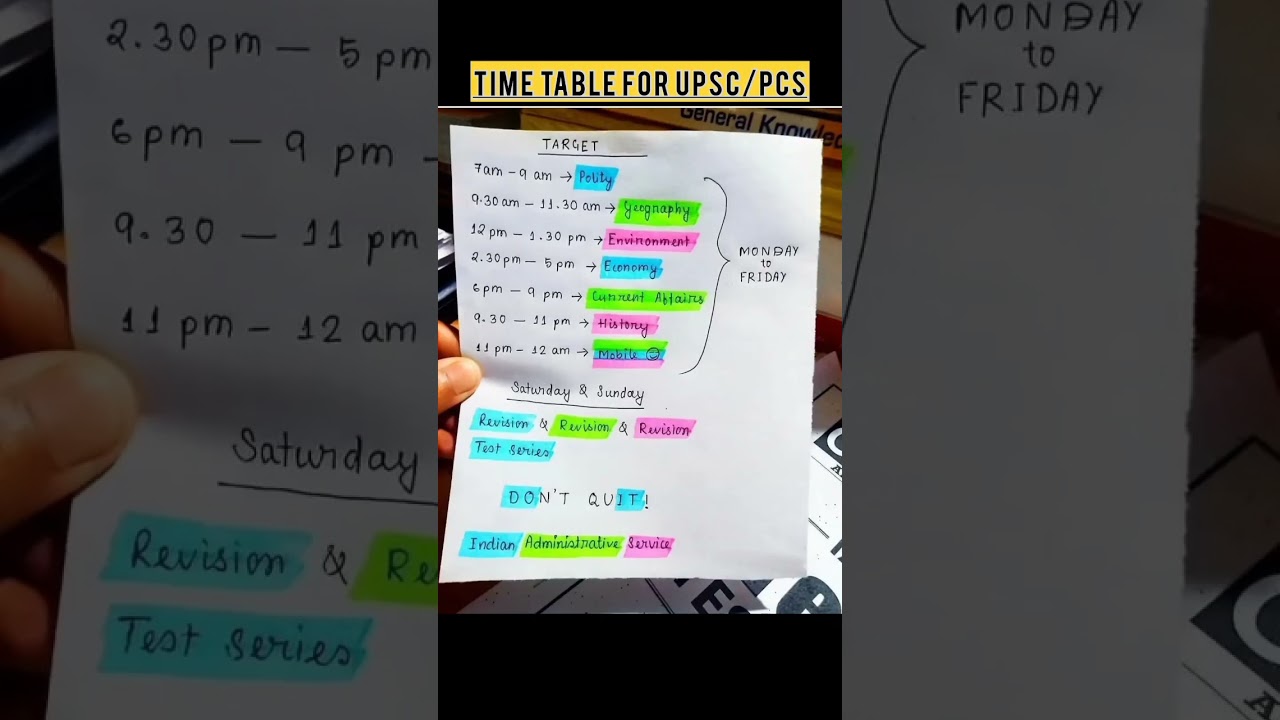 TIME TABLE FOR UPSC/PCS
General Knowled
TARGET
7am – 9 am → Polity
9.30 am – 11.30 am → Geography
12pm – 1.30 pm → Environment
2.30pm – 5 pm → Economy
6pm – 9 pm → Current Affairs
9.30 – 11 pm → History
11 pm – 12 am → Mobile 😊
MONDAY
to
FRIDAY
Saturday & Sunday
Revision & Revision & Revision
Test series
DON'T QUIT!
Indian Administrative Service
2.30pm – 5 pm
6pm – 9 pm -
9.30 – 11 pm
11 pm – 12 am
Saturday
Revision & Re
Test series
MONDAY
to
FRIDAY